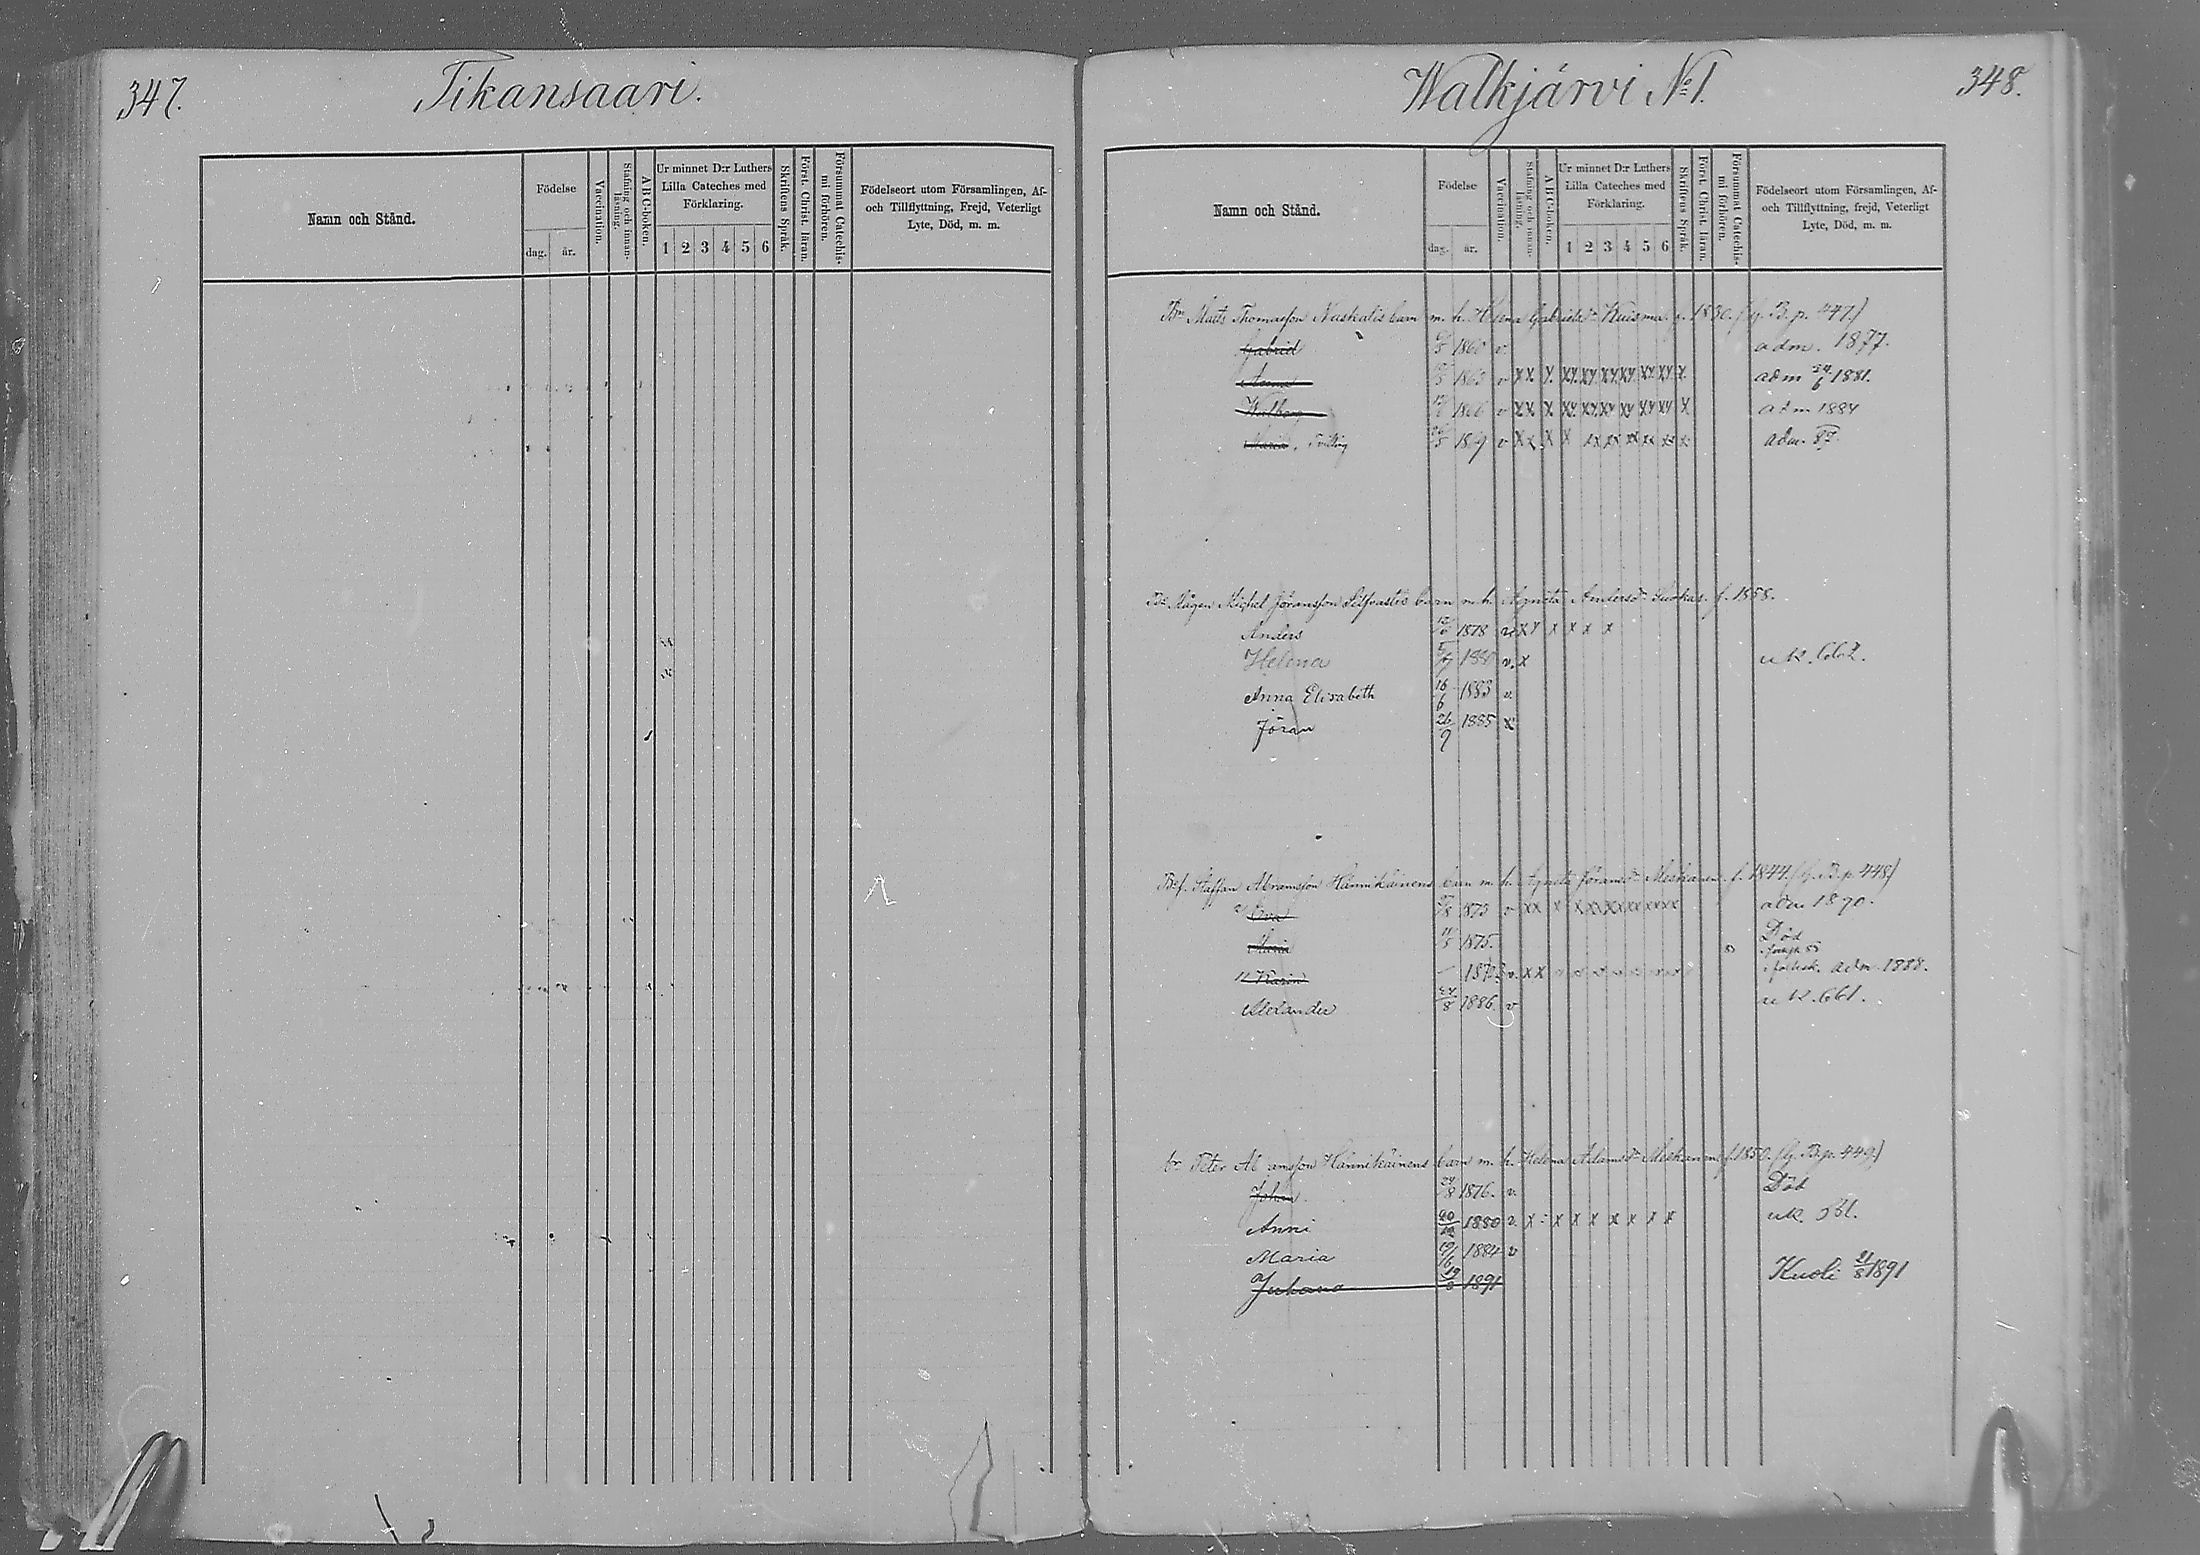 347.
Tikansaari.
Namn och Stånd.
Födelse
dag.
år.
Vaccination.
Stafning och innan-
läsning.
A B C-boken.
Ur minnet D:r Luthers
Lilla Cateches med
Förklaring.
1 2 3 4 5 6
Skriftens Språk.
Först. Christ. läran.
Försummat Catechis-
mi förhören.
Födelseort utom Församlingen, Af-
och Tillflyttning, Frejd, Veterligt
Lyte, Död, m. m.
Walkjärvi No 1.
348.
Namn och Stånd.
Födelse
dag.
år.
Vaccination.
Stafning och innan-
läsning.
A B C-boken.
Ur minnet D:r Luthers
Lilla Cateches med
Förklaring.
1 2 3 4 5 6
Skriftens Språk.
Först. Christ. läran.
Försummat Catechis-
mi förhören.
Födelseort utom Församlingen, Af-
och Tillflyttning, frejd, Veterligt
Lyte, Död, m. m.
Bn Matts Thomasson barn m. h. Helena Gabrielsdr Kuisma f. 1830. (g. B. p. 447.)
Gabriel 1860 v. adm. 1877.
Anna 1863 v x x x xx xx xx xx xx xx x adm 24/6 1881.
1866 v xx x xx xx xx xx xx xx x adm 1884
Maria, Tvilling 1869 v x x x x xx xx xx xx xx x adm. 87.
Michel Jöransson barn m. h. Agneta Andersdr f. 1858.
Anders 1878 v x x x x x x
Helena 1880 v. x uk.
Anna Elisabeth 16/6 1883 v.
Jöran 26/9 1885 x
Staffan Abramsson Hännikäinens barn m. h. Agneta Jöransdr Meskanen f. 1844. (g. B. p. 448)
Eva 1873 v xx x x xx xx xx xx xx adm 1890.
Maria 1875. Död
Karin v. x x adm. 1888.
Alexander 24/8 1886. v uk. 661.
br. Peter Abramsson Hännikäinens barn m. h. Helena Adamsdr Meskanen f. 1850. (g. B. p. 449)
Johan 24/8 1876. v. Död
Anni 20/12 1880 v. x x x x x x x x uk.
Maria 1884 v
Juhana 19/8 1891 Kuoli 21/8 1891